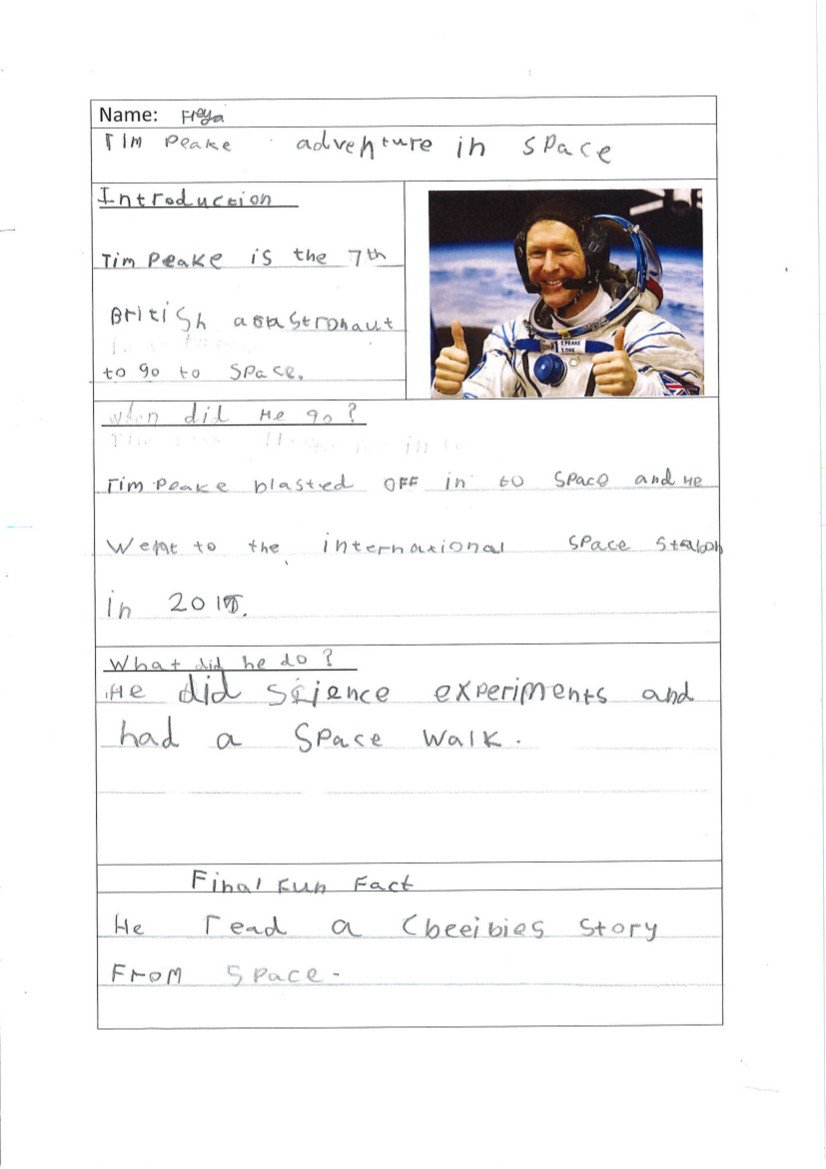 Name: Freya
TIM Peake adventure in space
Introduction
Tim Peake is the 7th
British astronaut
to go to space.
T. PEAKE
when did He go?
Tim Peake blasted OFF in to space and He
Went to the international space station
in
What did he do?
He did science experiments and
had a space walk.
Final Fun Fact
He read a Cbeeibies story
From space.